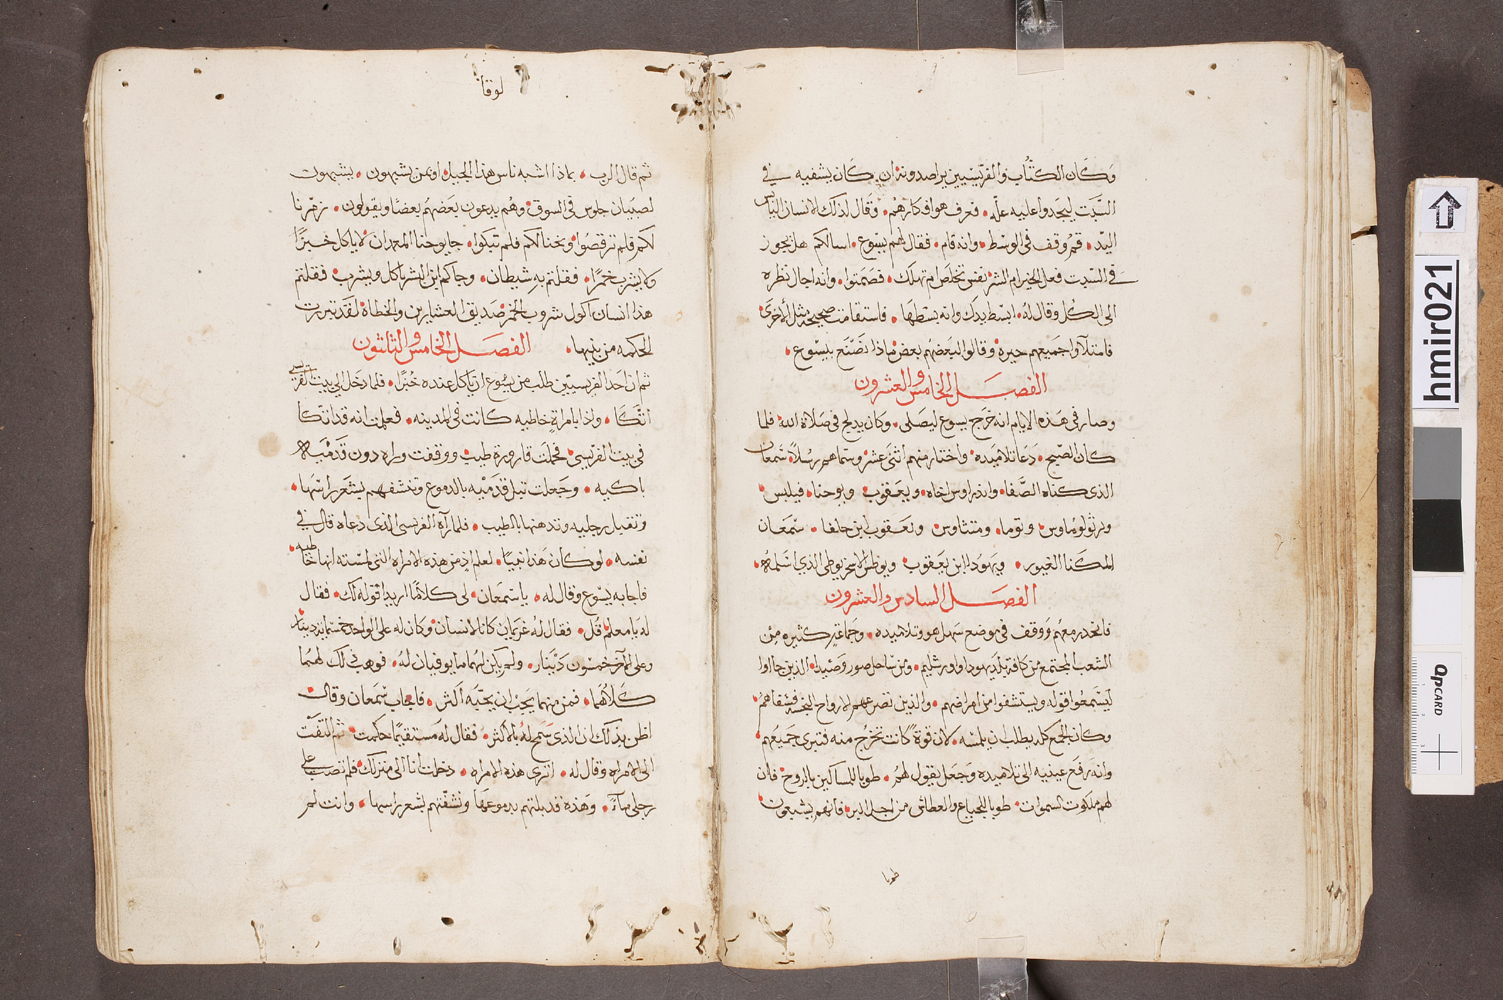 وكان الكتاب والفريسيين يراصدونه ان كان يشفيه في
السبت ليجدوا عليه علّه • فعرف هو افكارهم • وقال لذلك الانسان اليابس
اليد • قم وقف في الوسط • وانه قام • فقال لهم يسوع • اسالكم هل يجوز
في السبت فعل الخير ام الشر نفس تخلص ام تهلك • فصمتوا • وانه اجال نظره
الى الكل وقال له • ابسط يدك وانه بسطها • فاستقامت صحيحة مثل الأخرى
فامتلاوا جميعهم حيرة وقالوا لبعضهم بعض ماذا نصنع بيسوع •
الفصل الخامس والعشرون
وصار في هذه الايام انه خرج يسوع ليصلى • وكان يدلج في صلاة الله فلما
كان الصبح • دعا تلاميذه • واختار منهم اثنى عشر وسماهم رسلاً • سمعان
الذى كناه الصفا • واندراوس اخاه • ويعقوب • ويوحنا • فيلبس
وبرثولوماوس • وتوما • ومتثاوس • ويعقوب ابن حلفا • سمعان
المكنا الغيور • ويهودا ابن يعقوب • ويوظس الاسخريوطى الذي اسلمه •
الفصل السادس والعشرون
فانحدر معهم ووقف في موضع سهل هو وتلاميذه • وجماعة كثيره من
الشعب المجتمع من كافة بلد يهودا واورشليم • ومن ساحل صور وصيدا • الذين جااوا
ليسمعوا قوله ويستشفوا من امراضهم • والذين تصرعهم الارواح النجسة فشفاهم
وكان الجمع كله يطلب ان يلمسه • لان قوةً كانت تخرج منه فتبرى جميعهم
وانه رفع عينيه الى تلاميذه وجعل يقول لهم • طوبا للمساكين بالروح • فان
لهم ملكوت السموات • طوبا للجياع والعطاش من اجل البر • فانهم يشبعون
طوبا
لوقا
ثم قال الرب • بماذا اشبه ناس هذا الجيل • او بمن يشبهون • يشبهون
لصبيان جلوس في السوق • وهم يدعون بعضهم بعضا ويقولون • زمرنا
لكم فلم ترقصوا • ونحنا لكم فلم تبكوا • جا يوحنا المعمدان لا ياكل خبزًا
ولا يشرب خمرًا • فقلتم به شيطان • وجاكم ابن البشر ياكل ويشرب • فقلتم
هذا انسان اكول شروب الخمر صديق العشارين والخطاة • لقد تبررت
الحكمه من بنيها • الفصل الخامس والثلثون
ثم ان احد الفريسيّين طلب من يسوع ان ياكل عنده خبزًا • فلما دخل الى بيت الفريسي
اتكا • واذا بامراةٍ خاطيه كانت في المدينه • فعلمت انه قد اتكا
في بيت الفريسى • فحملت قارورة طيب • ووقفت وراه دون قدميه
باكيه • وجعلت تبل قدميه بالدموع وتنشفهم بشعر راسها •
وتقبل رجليه وتدهنها بالطيب • فلما رآه الفريسى الذى دعاه قال في
نفسه • لو كان هذا نبيًا • لعلم اذ من هذه الامراه التى لمسته انها خاطيه •
فاجابه يسوع وقال له • يا سمعان • لى كلامًا اريد اقوله لك • فقال
له يا معلم قل • فقال له غريمان كانا لانسان • وكان له على الواحد خمسمايه دينار
وعلى الآخر خمسون دينار • ولم يكن لهما ما يوفيان له • فوهب ذلك لهما
كلاهما • فمن منهما يجب ان يحبّه اكثر • فاجاب سمعان وقال
اظن بذلك ان الذى سمح له بالاكثر • فقال له مستقيمًا حكمت • ثم التفت
الى الامراه وقال له • اترى هذه الامراه • دخلت انا الى منزلك • فلم تصب على
رجلى مآءً • وهذه قد بلتهم بدموعها ونشفتهم بشعر راسها • وانت لم
hmir021
QPCARD